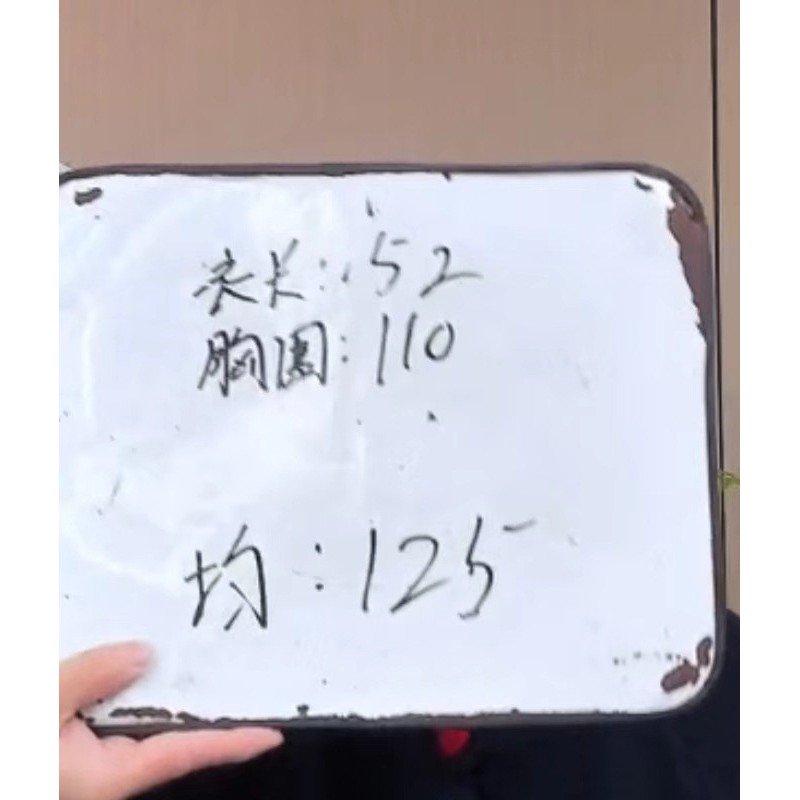 衣长:52
胸围:110
均:125